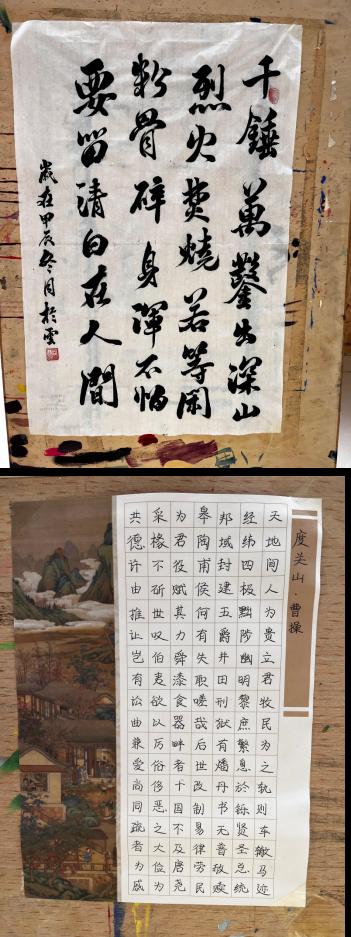 千錘萬鑿出深山
烈火焚燒若等閑
粉骨碎身渾不怕
要留清白在人間
歲在甲辰冬月於雲
度关山·曹操
天地间人为贵立君牧民为之轨则车辙马迹
经纬四极黜陟幽明黎庶繁息於铄贤圣总统
邦域封建五爵井田刑狱有燔丹书无普赦赎
皋陶甫侯何有失职嗟哉后世改制易律劳民
为君役赋其力舜漆食器畔者十国不及唐尧
采椽不斫世叹伯夷欲以厉俗侈恶之大俭为
共德许由推让岂有讼曲兼爱尚同疏者为戚